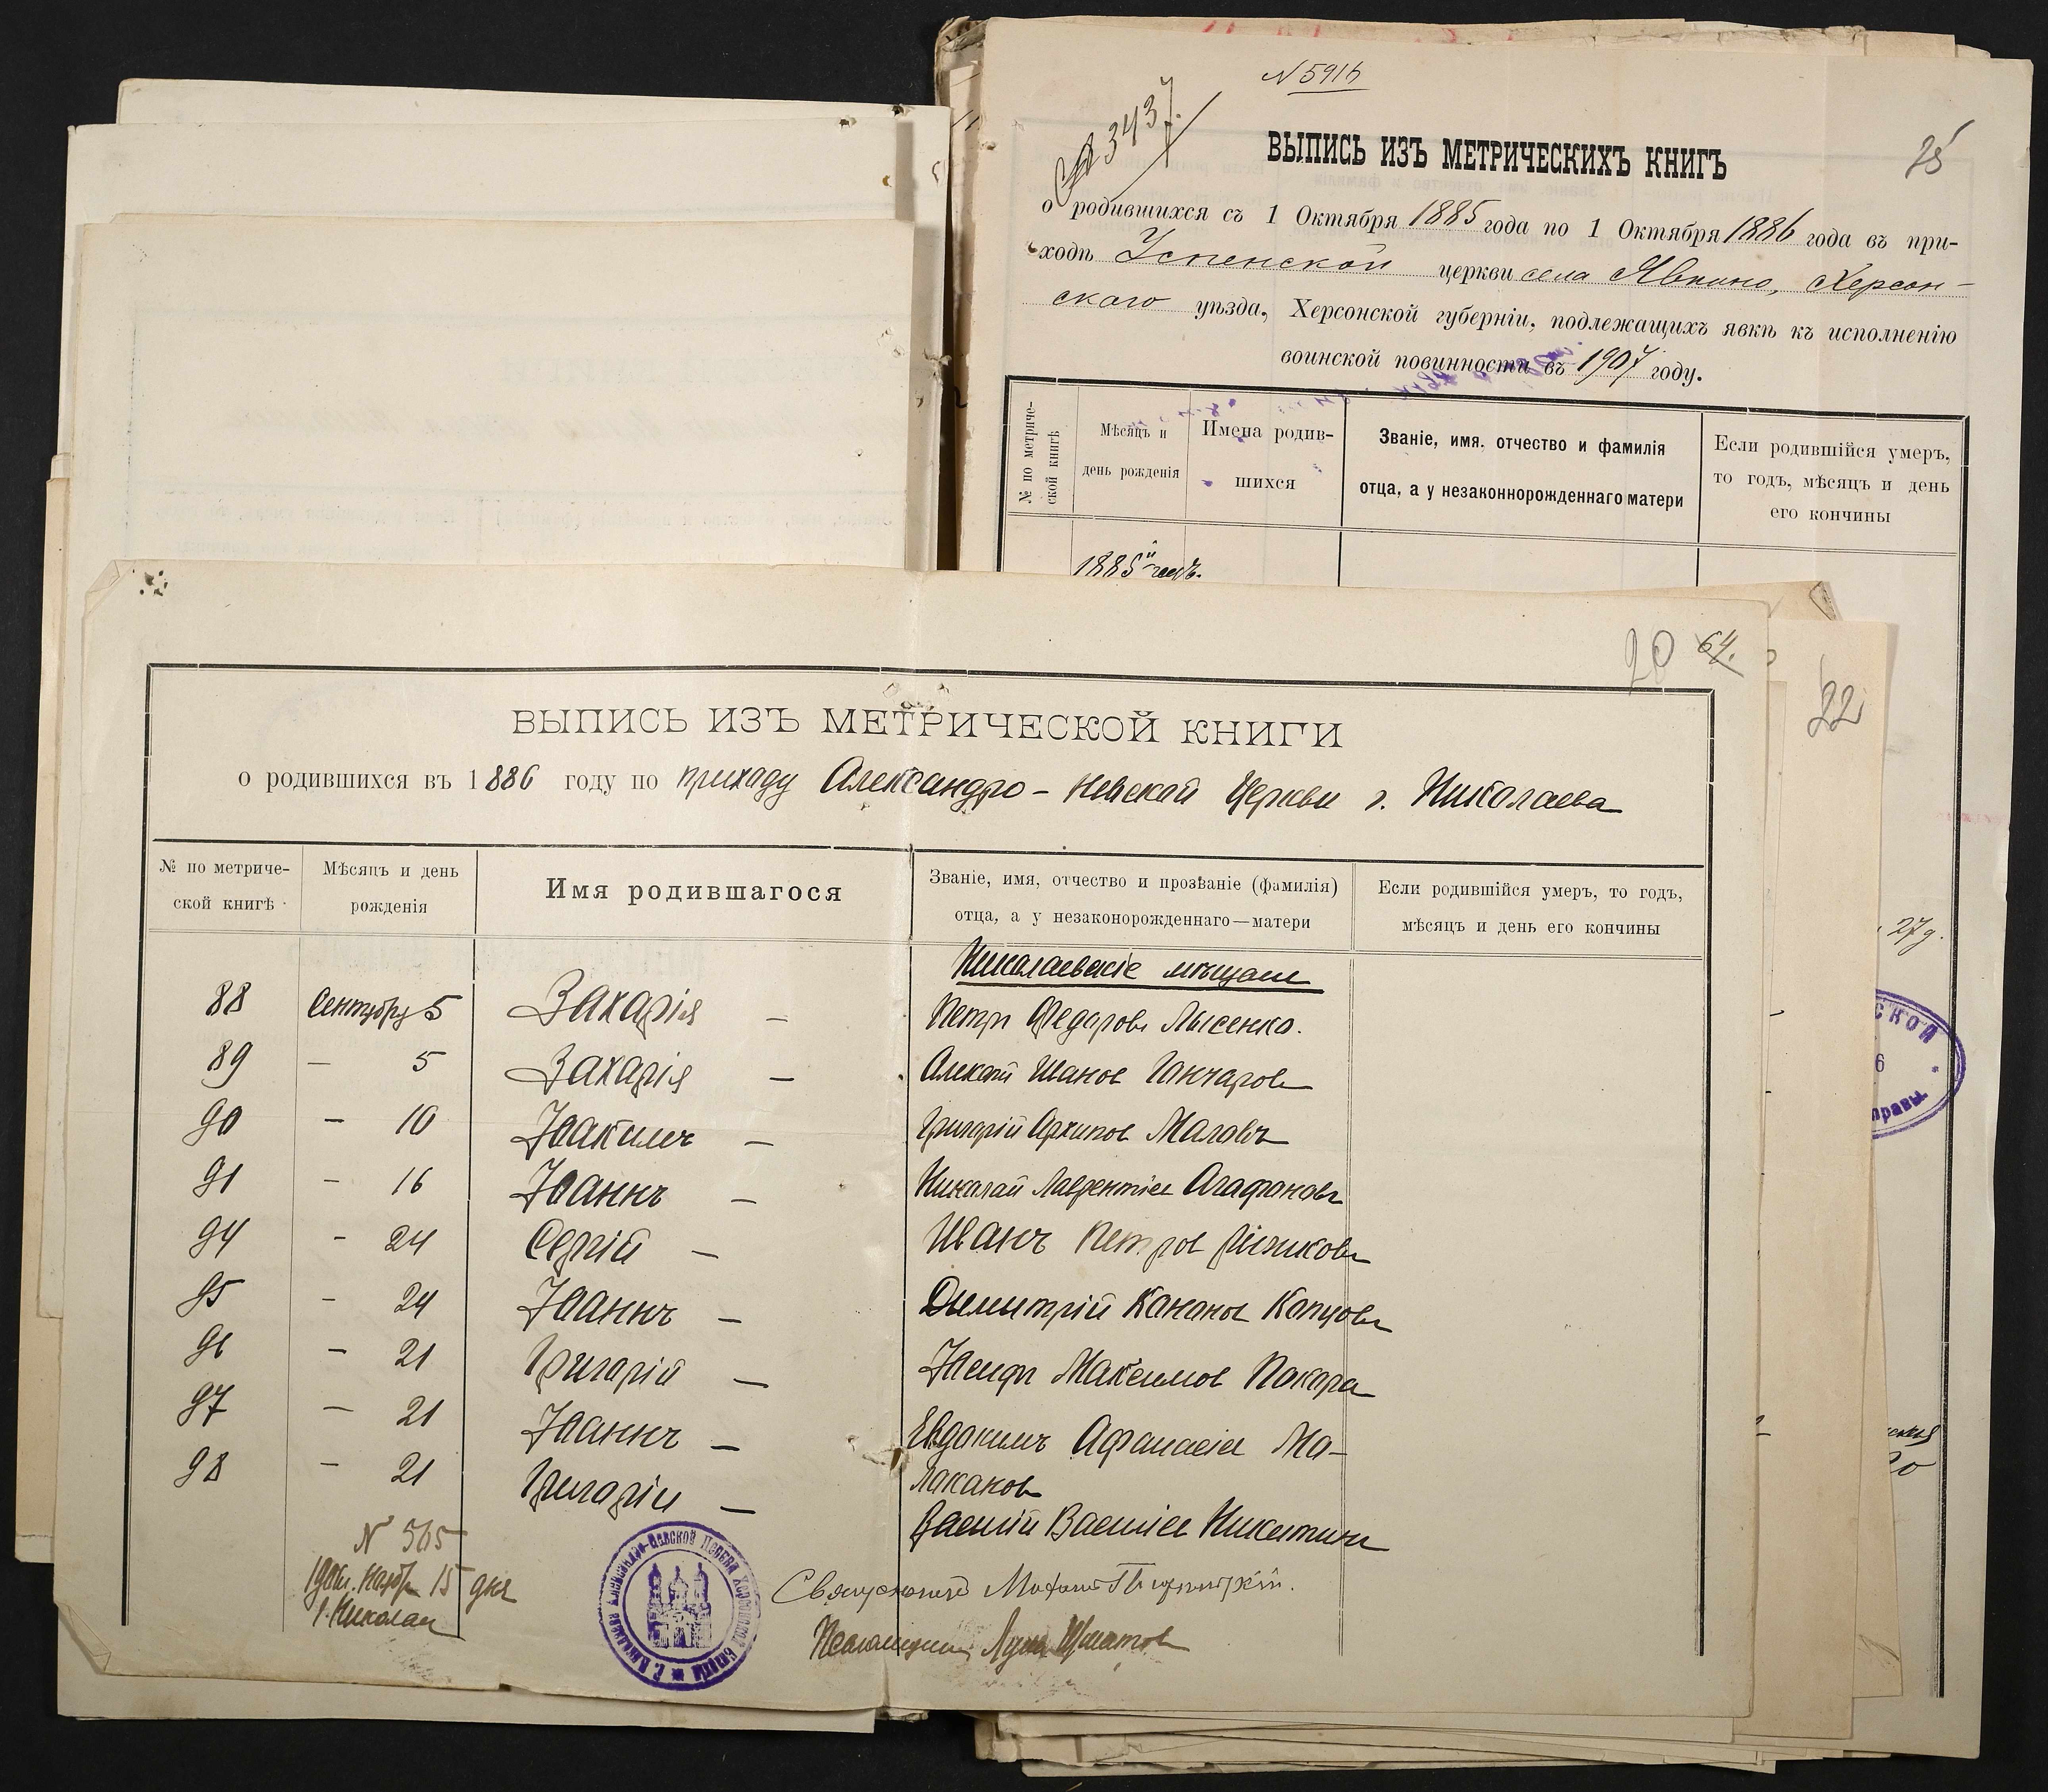 N 5916
3437.
25
ВЫПИСЬ ИЗЪ МЕТРИЧЕСКИХЪ КНИГЪ
о родившихся съ 1 Октября 1885 года по 1 Октября 1886 года въ при-
ходѣ Успенской церкви села Явкино, Херсон-
скаго уѣзда, Херсонской губерніи, подлежащихъ явкѣ къ исполненію
воинской повинности въ 1907 году.
№ по метриче-
ской книгѣ
Мѣсяцъ и
день рожденія
Имена родив-
шихся
Званіе, имя, отчество и фамилія
отца, а у незаконнорожденнаго матери
Если родившійся умеръ,
то годъ, мѣсяцъ и день
его кончины
1885й годъ.
20 64.
22
27 д.
ВЫПИСЬ ИЗЪ МЕТРИЧЕСКОЙ КНИГИ
о родившихся въ 1886 году по приходу Александро-Невской Церкви г. Николаева
№ по метриче-
ской книгѣ
Мѣсяцъ и день
рожденія
Имя родившагося
Званіе, имя, отчество и прозваніе (фамилія)
отца, а у незаконорожденнаго—матери
Если родившійся умеръ, то годъ,
мѣсяцъ и день его кончины
Николаевскіе мѣщане
88 Сентября 5 Захарія — Петръ Федоровъ Лысенко.
89 — 5 Захарія — Алексѣй Иванов Ганчаровъ
90 — 10 Іоакимъ — Григорій Архипов Маловъ
91 — 16 Іоаннъ — Николай Лаврентіев Агафоновъ
94 — 24 Сергій — Иванъ Петров
95 — 24 Іоаннъ — Димитрій Канонов Капцовъ
96 — 21 Григорій — Іосифъ Максимов Покора
97 — 21 Іоаннъ — Евдокимъ Афанасіев Мо-
локановъ
98 — 21 Григорій — Василій Васильев Никитинъ
N 565
1906г. Нояб. 15 дня
г. Николаев
Священникъ Михаил
Псаломщикъ
СКОЙ
6
правы